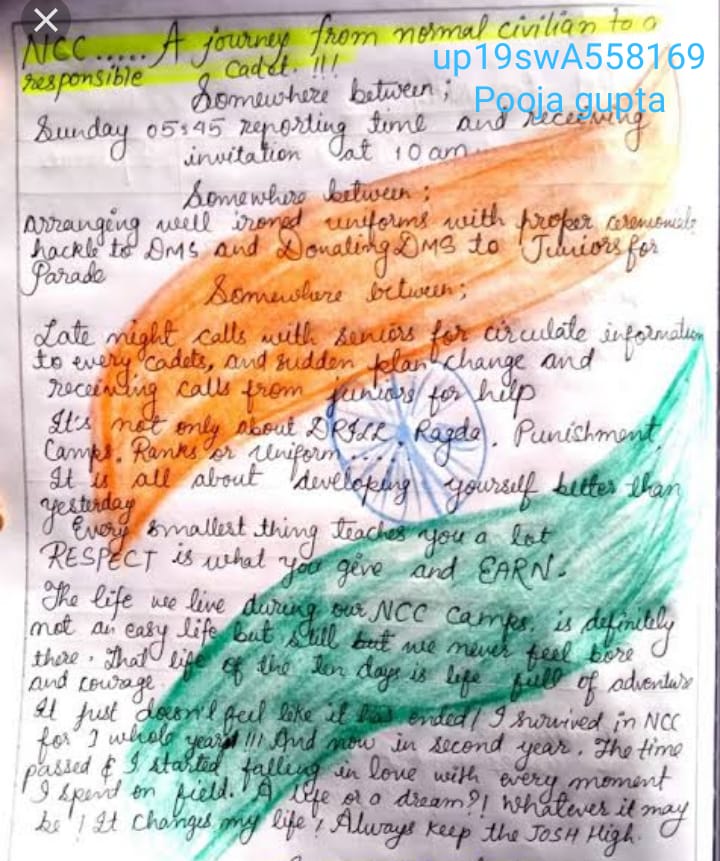 NCC..... A journey from normal civilian to a
responsible cadet. !!!
up19swA558169
Pooja gupta
Somewhere between;
Sunday 05:45 reporting time and receiving
invitation at 10 am
Somewhere between;
Arranging well ironed uniforms with proper
hackle to DMS and Donating DMS to Juniors for
Parade
Somewhere between;
Late night calls with seniors for circulate information
to every cadets, and sudden plan change and
receiving calls from juniors for help
It's not only about DRILL. Ragda. Punishment,
Camps. Ranks or Uniform.....
It is all about developing yourself better than
yesterday
Every smallest thing teaches you a lot
RESPECT is what you give and EARN.
The life we live during our NCC Camps. is definitely
not an easy life but still but we never feel bore
there. That life of the ten days is life full of adventure
and courage
It just doesn't feel like it has ended! I survived in NCC
for 1 whole year !!! And now in second year. The time
passed & I started falling in love with every moment
I spend on field. A life or a dream?! Whatever it may
be! It changes my life! Always keep the JOSH High.